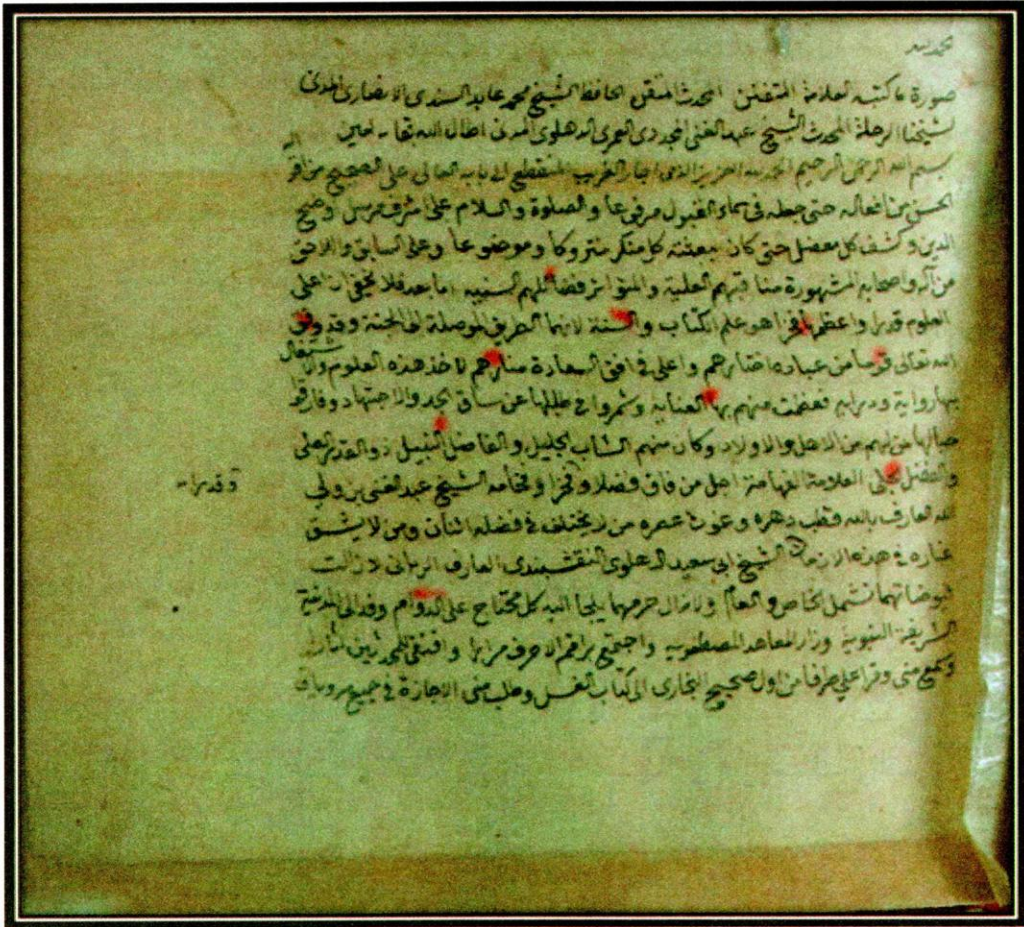 الحمد لله
صورة ما كتبه العلامة المتفنن المحدث المتقن الحافظ الشيخ محمد عابد السندى الانصارى المدنى
لشيخنا الرحلة المحدث الشيخ عبد الغنى المجددى العمرى الدهلوى المدنى اطال الله بقاه امين
بسم الله الرحمن الرحيم الحمد لله العزيز الذى اجار الغريب المنقطع الى بابه العالى على الصحيح من اقواله
الحسن من افعاله حتى جعله فى سماء القبول مرفوعا والصلوة والسلام على اشرف مرسل وضح
الدين وكشف كل معضل حتى كان ببعثته كل منكر متروكا وموضوعا وعلى السابق واللاحق
من آله واصحابه المشهورة مناقبهم العلية والمتواتر فضائلهم السنيه اما بعد فلا يخفى ان اعلى
العلوم قدرا واعظمها فخرا هو علم الكتاب والسنة لانهما الطريق الموصلة الى الجنة وقد وفق
الله تعالى قوما من عباده اختارهم واعلى فى افق السعادة منارهم لاخذ هذه العلوم والاشتغال
بها رواية ودراية فعظمت منهم بها العناية وشمروا فى طلبها عن ساق الجد والاجتهاد وفارقوا
حبالها من لهم من الاهل والاولاد وكان منهم الشاب الجليل والفاضل النبيل ذو القدر العلى
والفضل الجلى العلامة الفهامة اجل من فاق فضلا وفخرا وفخامه الشيخ عبد الغنى بن ولي
وقدرا
الله العارف بالله قطب دهره وغوث عصره من لا يختلف فى فضله اثنان ومن لا يشق
غباره فى هذه الازمان الشيخ ابى سعيد الدهلوى النقشبندى العارف الربانى لا زالت
فيوضاتهما تشمل الخاص والعام ولا زال حرمهما يلجا اليه كل محتاج على الدوام وفد الى المدينة
الشريفة النبوية وزار المعاهد المصطفويه واجتمع براقم الاحرف مرارا واقتفى للمحدثين اثارا
وسمع منى وقرا علي طرفا من اول صحيح البخارى الى كتاب الغسل وطلب منى الاجازة فى جميع مروياتى